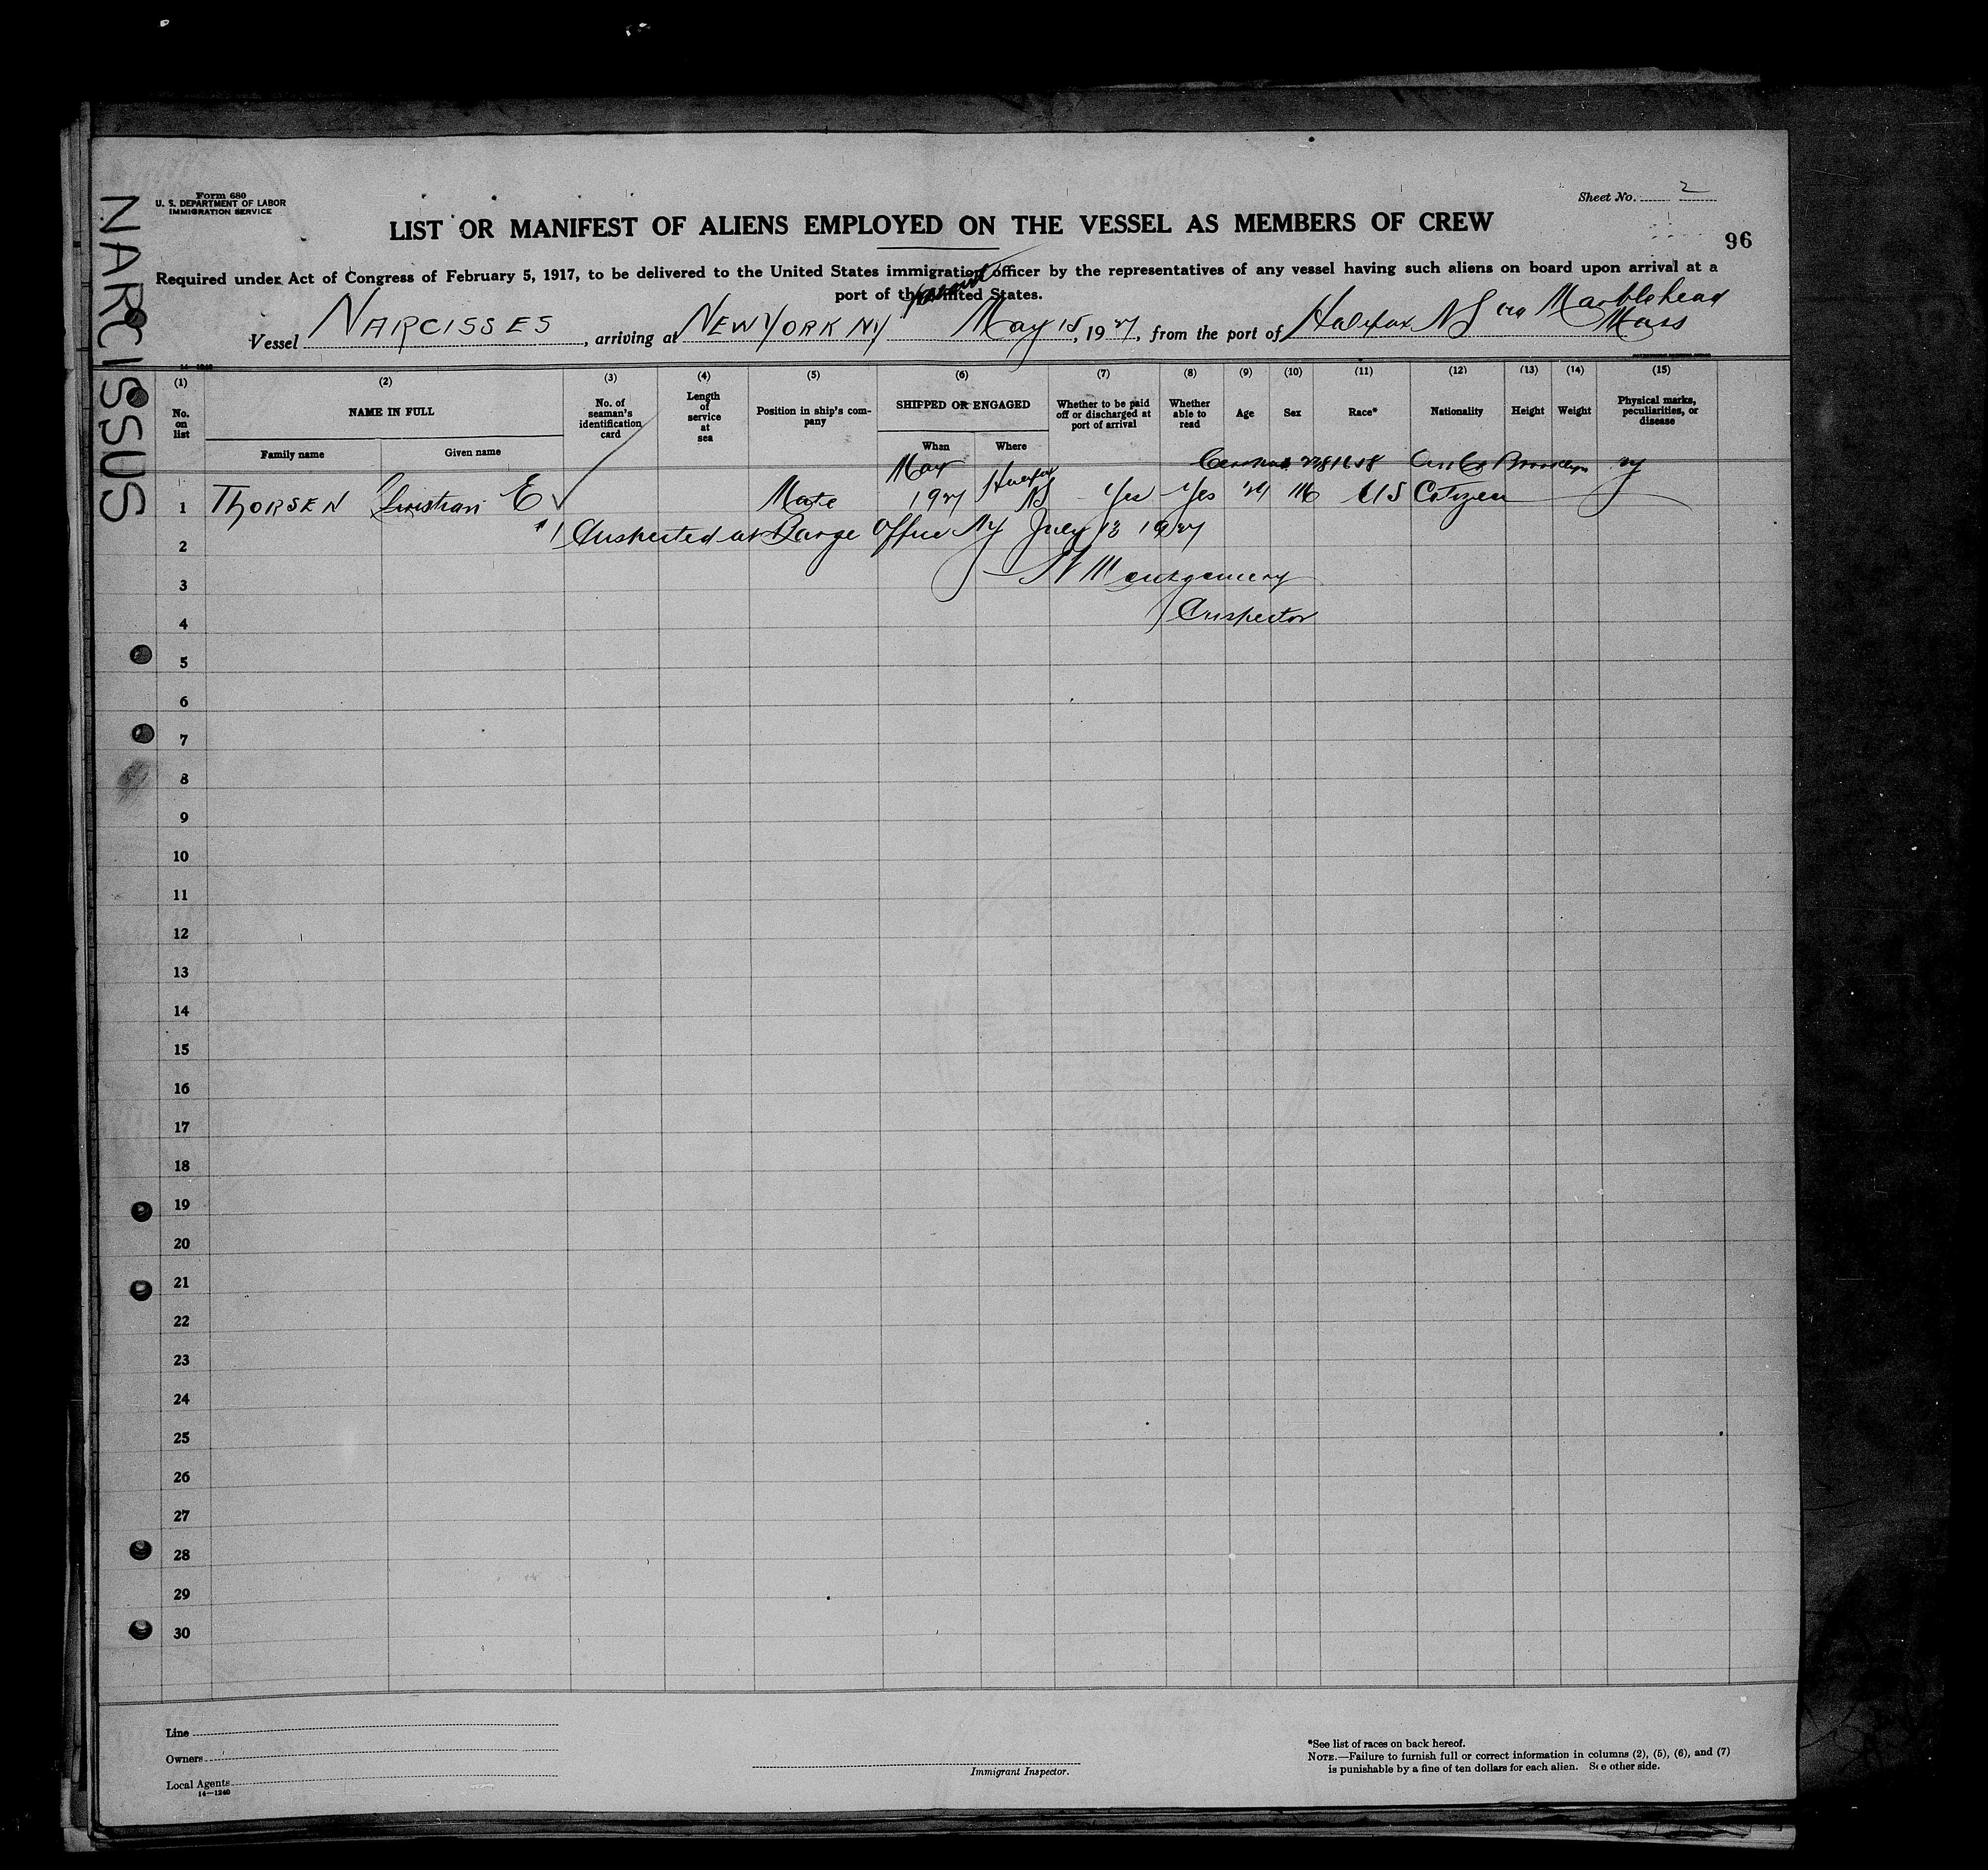 NARCISSUS
Form 680
U. S. DEPARTMENT OF LABOR
IMMIGRATION SERVICE
Sheet No. 2
LIST OR MANIFEST OF ALIENS EMPLOYED ON THE VESSEL AS MEMBERS OF CREW
96
Required under Act of Congress of February 5, 1917, to be delivered to the United States immigration officer by the representatives of any vessel having such aliens on board upon arrival at a
port of the United States.
Vessel NARCISSES, arriving at NEW YORK NY May 15, 1927, from the port of Halifax NS via Marblehead
Mass
(1) (2) (3) (4) (5) (6) (7) (8) (9) (10) (11) (12) (13) (14) (15)
No. on list
NAME IN FULL
Family name
Given name
No. of seaman's identification card
Length of service at sea
Position in ship's company
SHIPPED OR ENGAGED
When
Where
Whether to be paid off or discharged at port of arrival
Whether able to read
Age
Sex
Race*
Nationality
Height
Weight
Physical marks, peculiarities, or disease
May Halifax Brooklyn NY
1 THORSEN Christian E Mate 1927 NS Yes Yes M US Citizen
2 #1 Inspected at Barge Office NY July 13 1927
3 Montgomery
4 Inspector
5
6
7
8
9
10
11
12
13
14
15
16
17
18
19
20
21
22
23
24
25
26
27
28
29
30
Line
Owners
Local Agents
14—1240
Immigrant Inspector.
*See list of races on back hereof.
NOTE.—Failure to furnish full or correct information in columns (2), (5), (6), and (7)
is punishable by a fine of ten dollars for each alien. See other side.